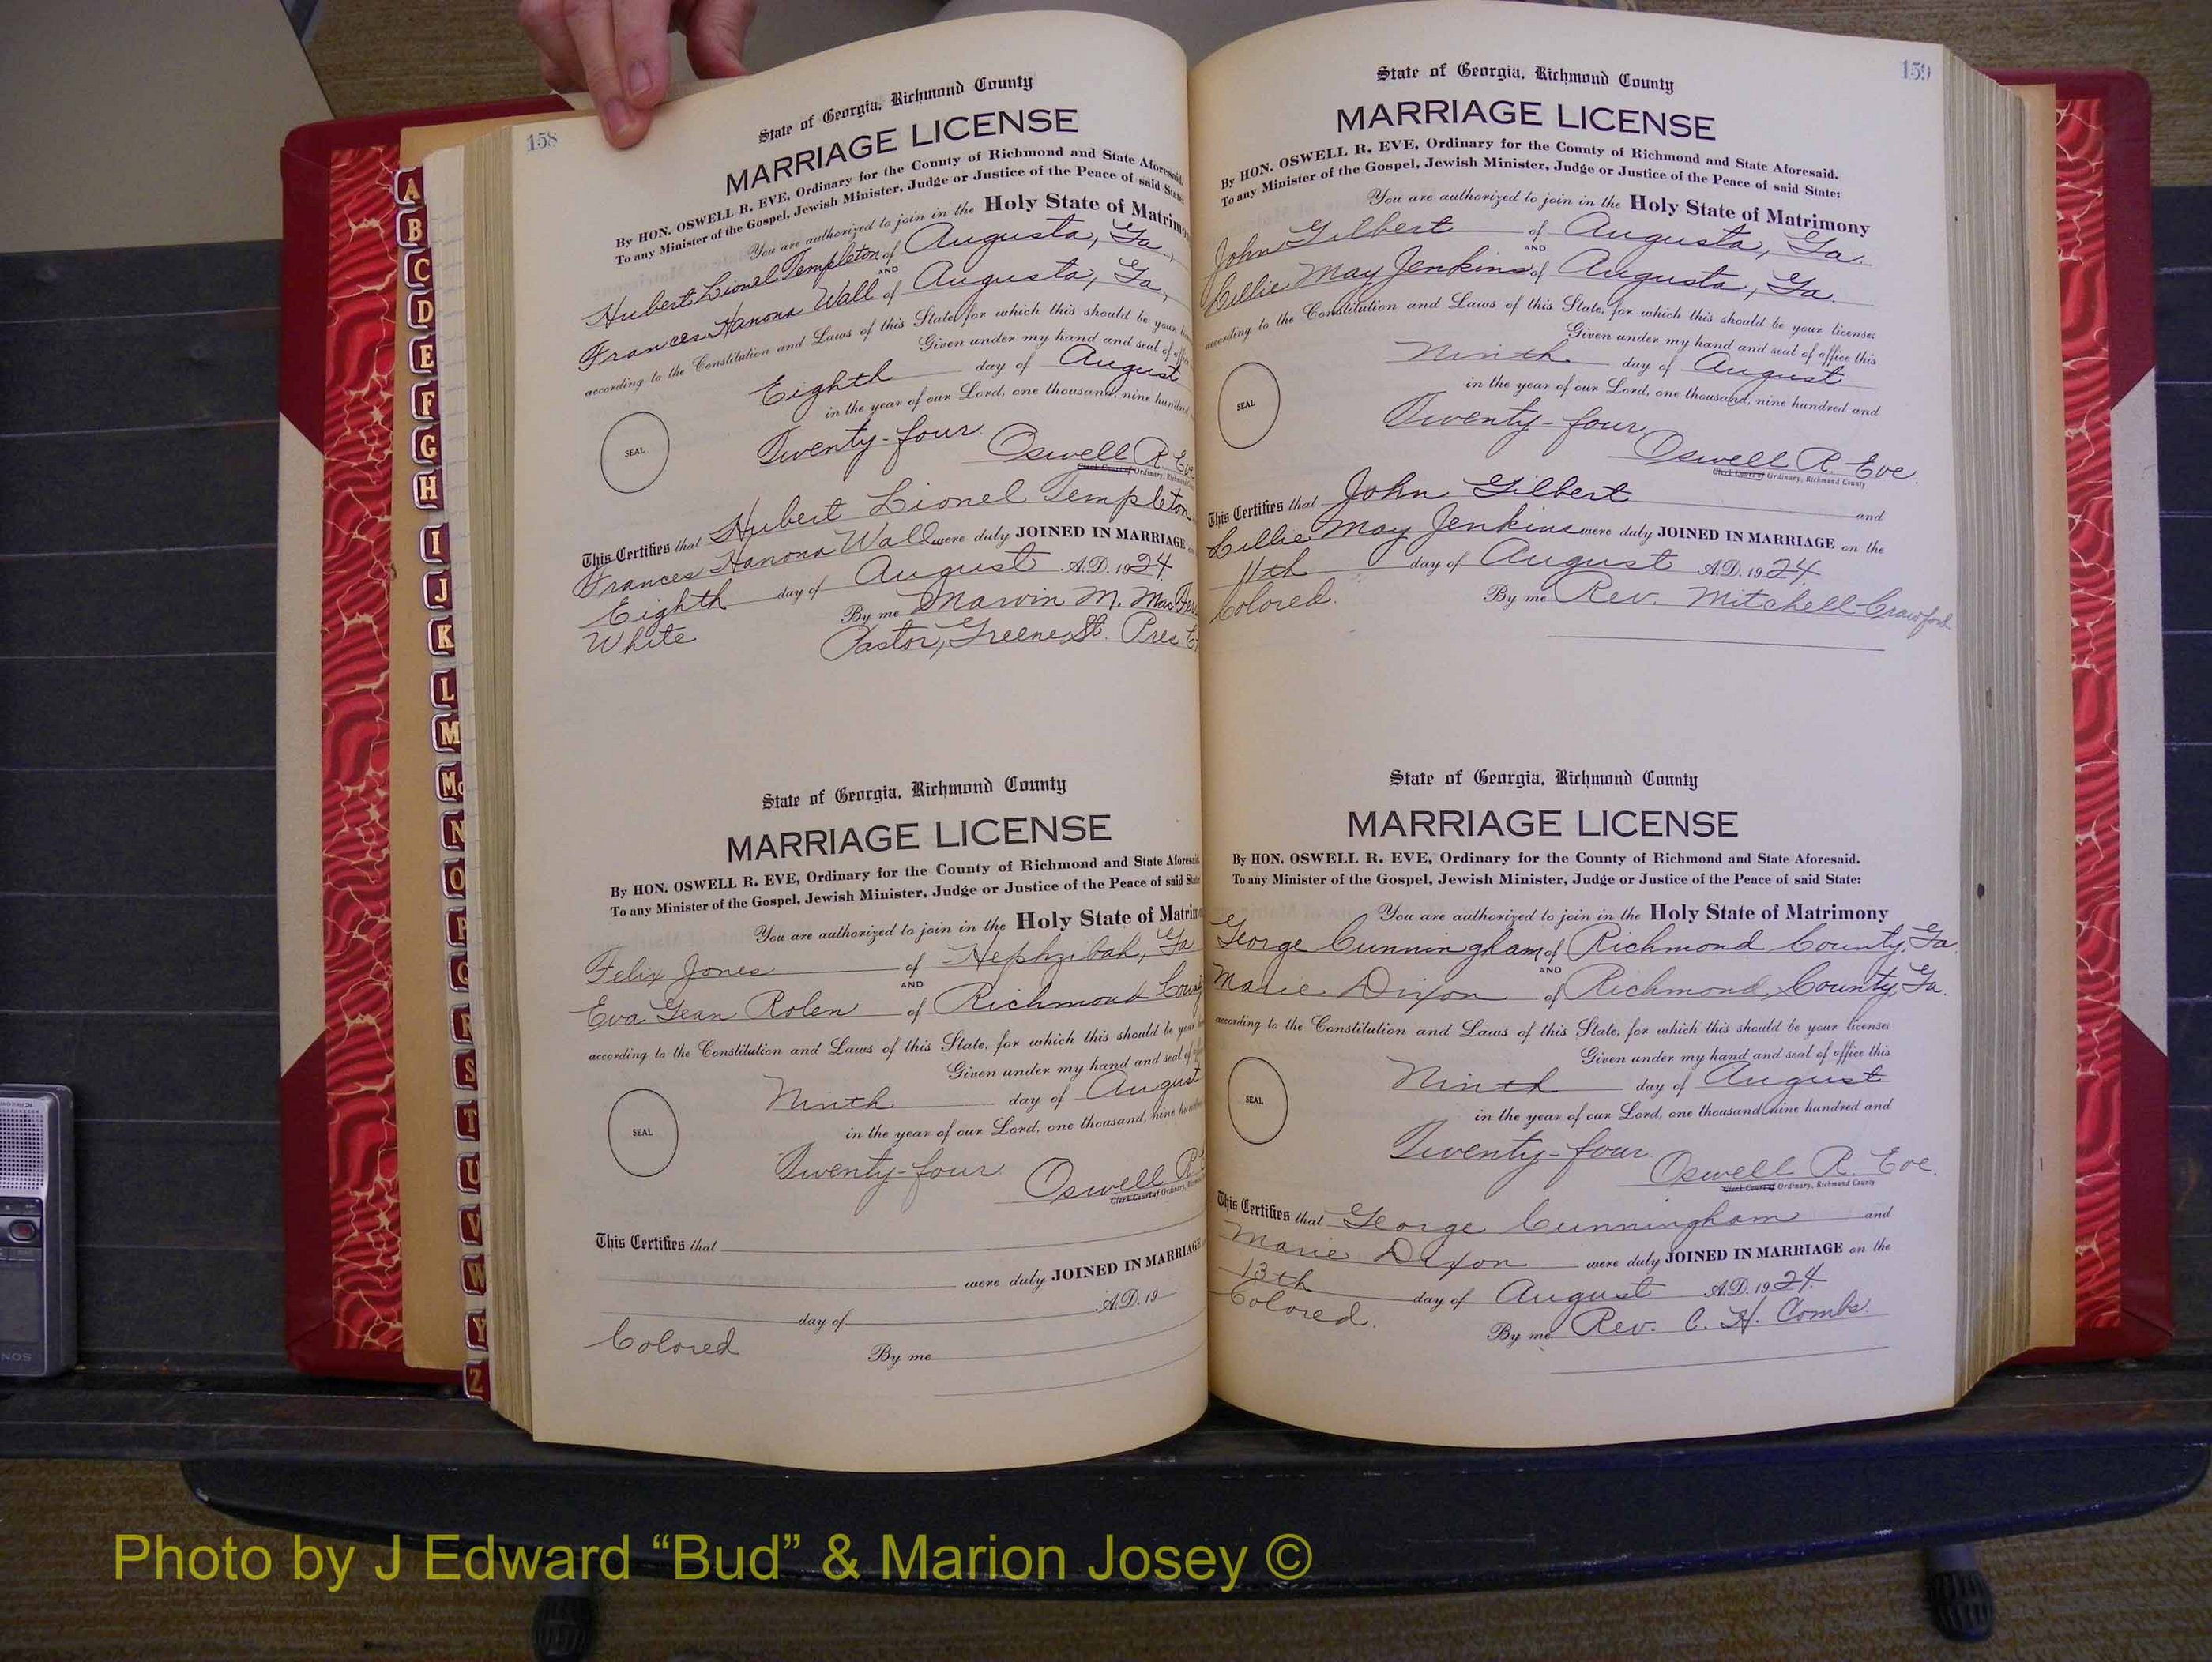 158
State of Georgia, Richmond County
MARRIAGE LICENSE
By HON. OSWELL R. EVE, Ordinary for the County of Richmond and State Aforesaid.
To any Minister of the Gospel, Jewish Minister, Judge or Justice of the Peace of said State
You are authorized to join in the Holy State of Matrimo
Hubert Lionel Templeton of Augusta, Ga.,
AND
Frances Hanona Wall of Augusta, Ga,
according to the Constitution and Laws of this State, for which this should be your
Given under my hand and seal of
Eighth day of August
in the year of our Lord, one thousand, nine hundred
SEAL
Twenty-four
Oswell R. Eve
Clerk Court of Ordinary, Richmond
This Certifies that Hubert Lionel Templeton
Frances Hanona Wall were duly JOINED IN MARRIAGE
Eighth day of August A.D. 1924.
White By me Marvin M. Mac
Pastor, Greene St. Pres
State of Georgia, Richmond County
MARRIAGE LICENSE
By HON. OSWELL R. EVE, Ordinary for the County of Richmond and State Aforesaid
To any Minister of the Gospel, Jewish Minister, Judge or Justice of the Peace of said State
You are authorized to join in the Holy State of Matrimo
Felix Jones of Hephzibah, Ga
AND
Eva Gean Rolen of Richmond Coun
according to the Constitution and Laws of this State, for which this should be your
Given under my hand and seal of
Ninth day of August
in the year of our Lord, one thousand, nine hundred
SEAL
Twenty-four
Oswell R
Clerk Court of Ordinary,
This Certifies that
were duly JOINED IN MARRIAGE
day of A.D. 19
Colored By me
159
State of Georgia, Richmond County
MARRIAGE LICENSE
By HON. OSWELL R. EVE, Ordinary for the County of Richmond and State Aforesaid.
To any Minister of the Gospel, Jewish Minister, Judge or Justice of the Peace of said State:
You are authorized to join in the Holy State of Matrimony
John Gilbert of Augusta, Ga.
AND
Lillie May Jenkins of Augusta, Ga.
according to the Constitution and Laws of this State, for which this should be your licenses
Given under my hand and seal of office this
Ninth day of August
in the year of our Lord, one thousand, nine hundred and
SEAL
Twenty-four
Oswell R. Eve.
Clerk Court of Ordinary, Richmond County
This Certifies that John Gilbert and
Lillie May Jenkins were duly JOINED IN MARRIAGE on the
11th day of August A.D. 1924.
Colored. By me Rev. Mitchell Crawford
State of Georgia, Richmond County
MARRIAGE LICENSE
By HON. OSWELL R. EVE, Ordinary for the County of Richmond and State Aforesaid.
To any Minister of the Gospel, Jewish Minister, Judge or Justice of the Peace of said State:
You are authorized to join in the Holy State of Matrimony
George Cunningham of Richmond County, Ga
AND
Marie Dixon of Richmond, County, Ga.
according to the Constitution and Laws of this State, for which this should be your licenses
Given under my hand and seal of office this
Ninth day of August
in the year of our Lord, one thousand, nine hundred and
SEAL
Twenty-four.
Oswell R. Eve.
Clerk Court of Ordinary, Richmond County
This Certifies that George Cunningham and
Marie Dixon were duly JOINED IN MARRIAGE on the
13th day of August A.D. 1924.
Colored. By me Rev. C. H. Combs.
A
B
C
D
E
F
G
H
I
J
K
L
M
Mc
N
O
P
Q
R
S
T
U
V
W
Y
Z
Photo by J Edward “Bud” & Marion Josey ©